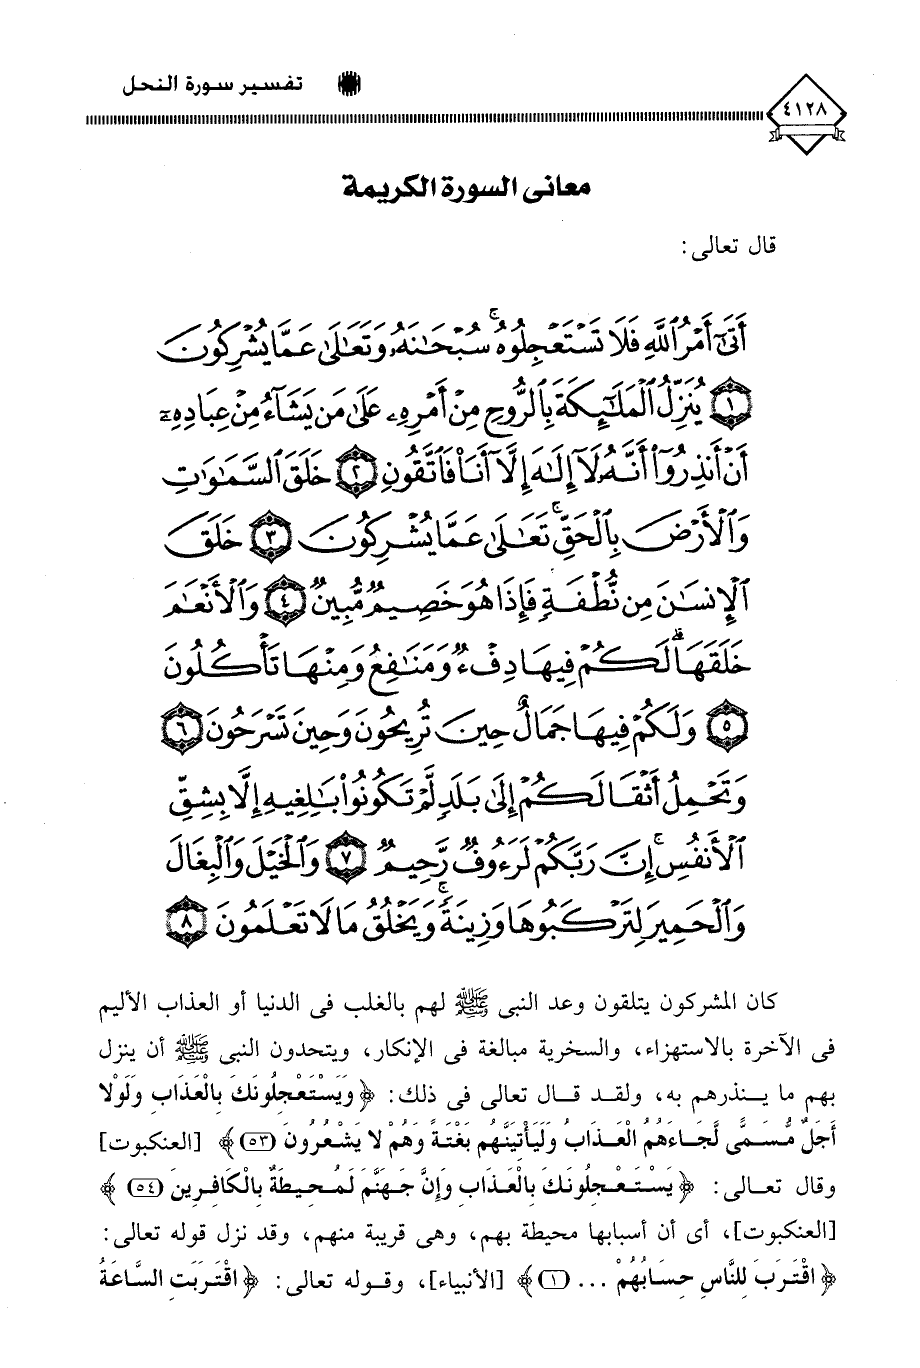 ٤١٢٨
تفسير سورة النحل
معانى السورة الكريمة
قال تعالى:
أَتَىٰٓ أَمْرُ ٱللَّهِ فَلَا تَسْتَعْجِلُوهُ ۚ سُبْحَٰنَهُۥ وَتَعَٰلَىٰ عَمَّا يُشْرِكُونَ
١ يُنَزِّلُ ٱلْمَلَٰٓئِكَةَ بِٱلرُّوحِ مِنْ أَمْرِهِۦ عَلَىٰ مَن يَشَآءُ مِنْ عِبَادِهِۦٓ
أَنْ أَنذِرُوٓا۟ أَنَّهُۥ لَآ إِلَٰهَ إِلَّآ أَنَا۠ فَٱتَّقُونِ ٢ خَلَقَ ٱلسَّمَٰوَٰتِ
وَٱلْأَرْضَ بِٱلْحَقِّ ۚ تَعَٰلَىٰ عَمَّا يُشْرِكُونَ ٣ خَلَقَ
ٱلْإِنسَٰنَ مِن نُّطْفَةٍ فَإِذَا هُوَ خَصِيمٌ مُّبِينٌ ٤ وَٱلْأَنْعَٰمَ
خَلَقَهَا ۗ لَكُمْ فِيهَا دِفْءٌ وَمَنَٰفِعُ وَمِنْهَا تَأْكُلُونَ
٥ وَلَكُمْ فِيهَا جَمَالٌ حِينَ تُرِيحُونَ وَحِينَ تَسْرَحُونَ ٦
وَتَحْمِلُ أَثْقَالَكُمْ إِلَىٰ بَلَدٍ لَّمْ تَكُونُوا۟ بَٰلِغِيهِ إِلَّا بِشِقِّ
ٱلْأَنفُسِ ۚ إِنَّ رَبَّكُمْ لَرَءُوفٌ رَّحِيمٌ ٧ وَٱلْخَيْلَ وَٱلْبِغَالَ
وَٱلْحَمِيرَ لِتَرْكَبُوهَا وَزِينَةً ۚ وَيَخْلُقُ مَا لَا تَعْلَمُونَ ٨
كان المشركون يتلقون وعد النبى ﷺ لهم بالغلب فى الدنيا أو العذاب الأليم
فى الآخرة بالاستهزاء، والسخرية مبالغة فى الإنكار، ويتحدون النبى ﷺ أن ينزل
بهم ما ينذرهم به، ولقد قال تعالى فى ذلك: ﴿وَيَسْتَعْجِلُونَكَ بِالْعَذَابِ وَلَوْلا
أَجَلٌ مُّسَمًّى لَّجَاءَهُمُ الْعَذَابُ وَلَيَأْتِيَنَّهُم بَغْتَةً وَهُمْ لا يَشْعُرُونَ (٥٣)﴾ [العنكبوت]
وقال تعالى: ﴿يَسْتَعْجِلُونَكَ بِالْعَذَابِ وَإِنَّ جَهَنَّمَ لَمُحِيطَةٌ بِالْكَافِرِينَ (٥٤)﴾
[العنكبوت]، أى أن أسبابها محيطة بهم، وهى قريبة منهم، وقد نزل قوله تعالى:
﴿اقْتَرَبَ لِلنَّاسِ حِسَابُهُمْ ... (١)﴾ [الأنبياء]، وقوله تعالى: ﴿اقْتَرَبَتِ السَّاعَةُ